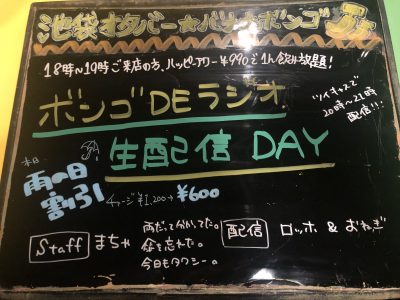 池袋オタバー☆バリィボンゴ
18時〜19時ご来店の方、ハッピーアワー¥990で1h飲み放題!
ボンゴDEラジオ
ツイキャスで
20時〜21時
配信!!
生配信 DAY
本日
雨の日
割引
チャージ¥1,200→¥600
Staff まちゃ
雨だって分かってた。
傘を忘れた。
今日もタクシー。
配信 ロッホ & おねぎ